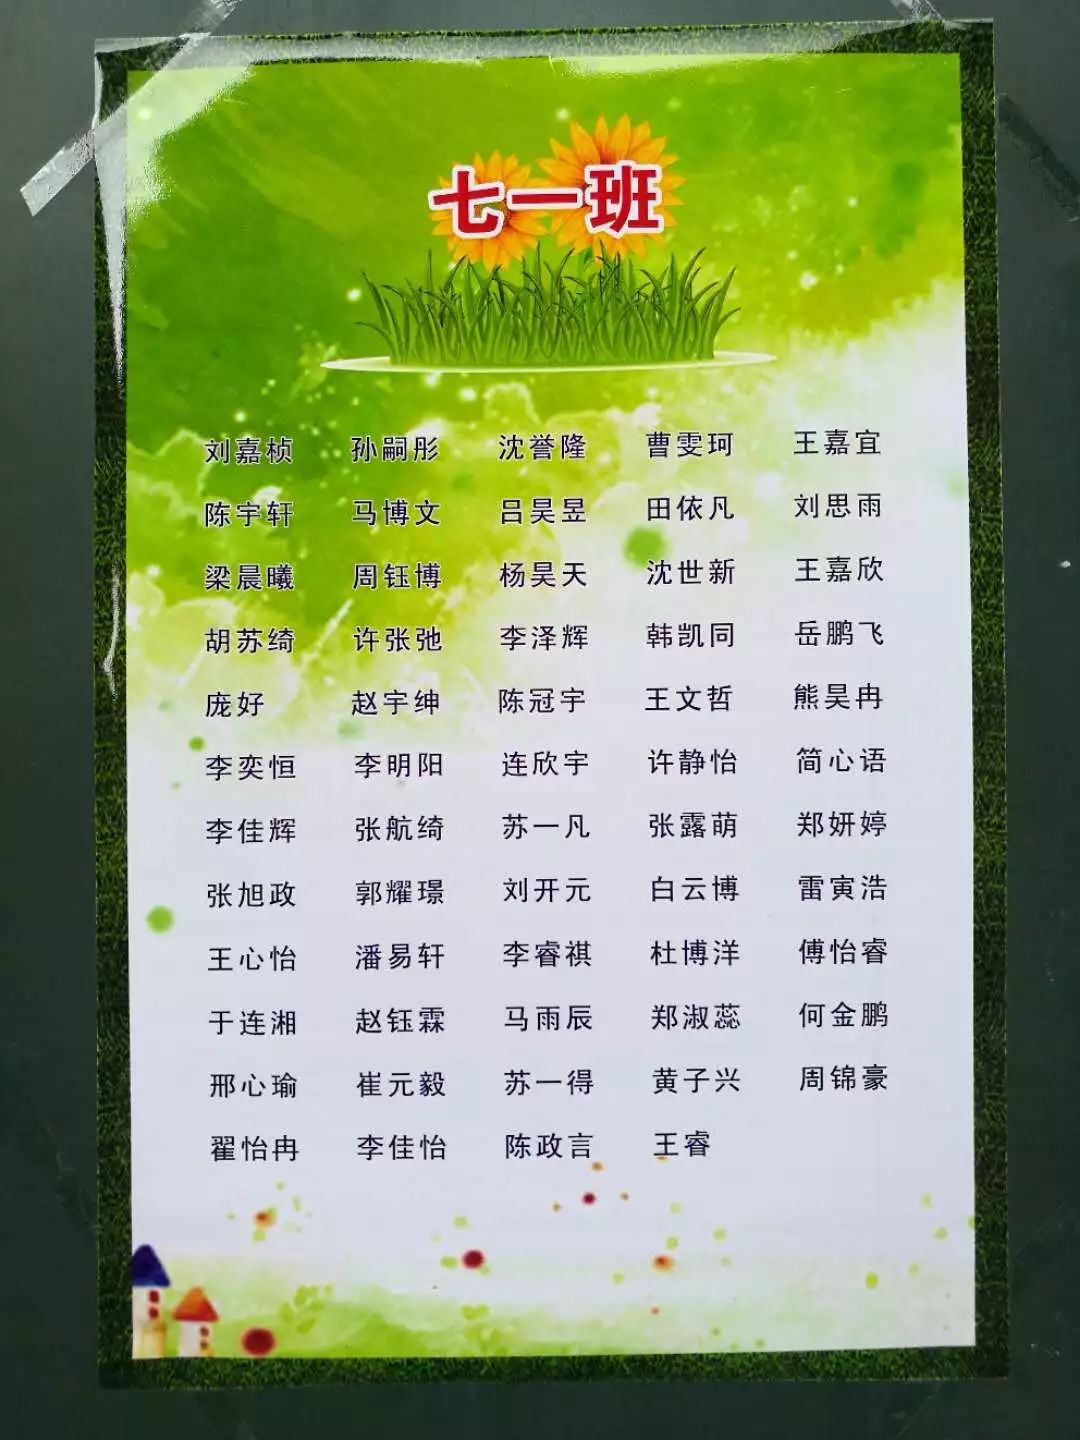 七一班
刘嘉桢 孙嗣彤 沈誉隆 曹雯珂 王嘉宜
陈宇轩 马博文 吕昊昱 田依凡 刘思雨
梁晨曦 周钰博 杨昊天 沈世新 王嘉欣
胡苏绮 许张弛 李泽辉 韩凯同 岳鹏飞
庞好 赵宇绅 陈冠宇 王文哲 熊昊冉
李奕恒 李明阳 连欣宇 许静怡 简心语
李佳辉 张航绮 苏一凡 张露萌 郑妍婷
张旭政 郭耀璟 刘开元 白云博 雷寅浩
王心怡 潘易轩 李睿祺 杜博洋 傅怡睿
于连湘 赵钰霖 马雨辰 郑淑蕊 何金鹏
邢心瑜 崔元毅 苏一得 黄子兴 周锦豪
翟怡冉 李佳怡 陈政言 王睿